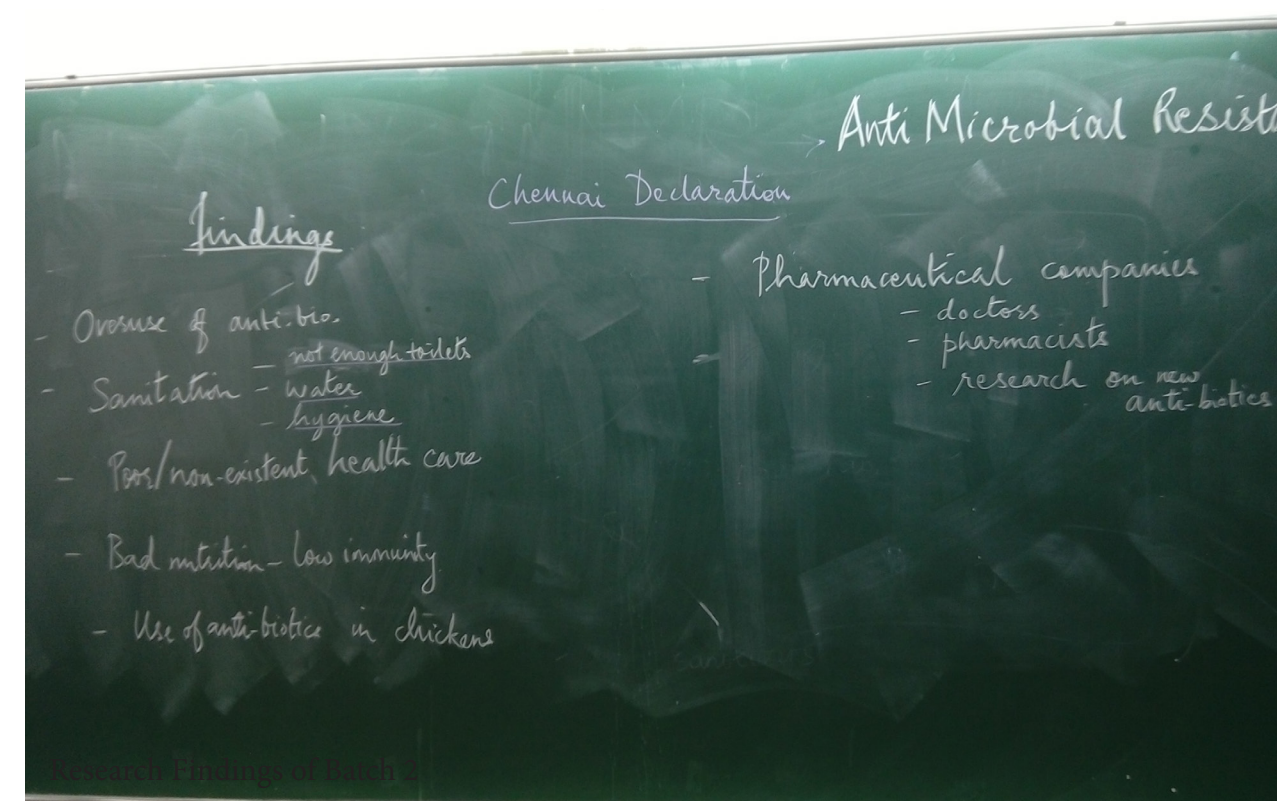 Anti Microbial Resist
Chennai Declaration
Findings
- Overuse of anti-bio.
- Sanitation - not enough toilets
- water
- hygiene
- Poor/non-existent health care
- Bad nutrition - low immunity
- Use of anti-biotics in chickens
- Pharmaceutical companies
- doctors
- pharmacists
- research on new
anti-biotics
Research Findings of Batch 2